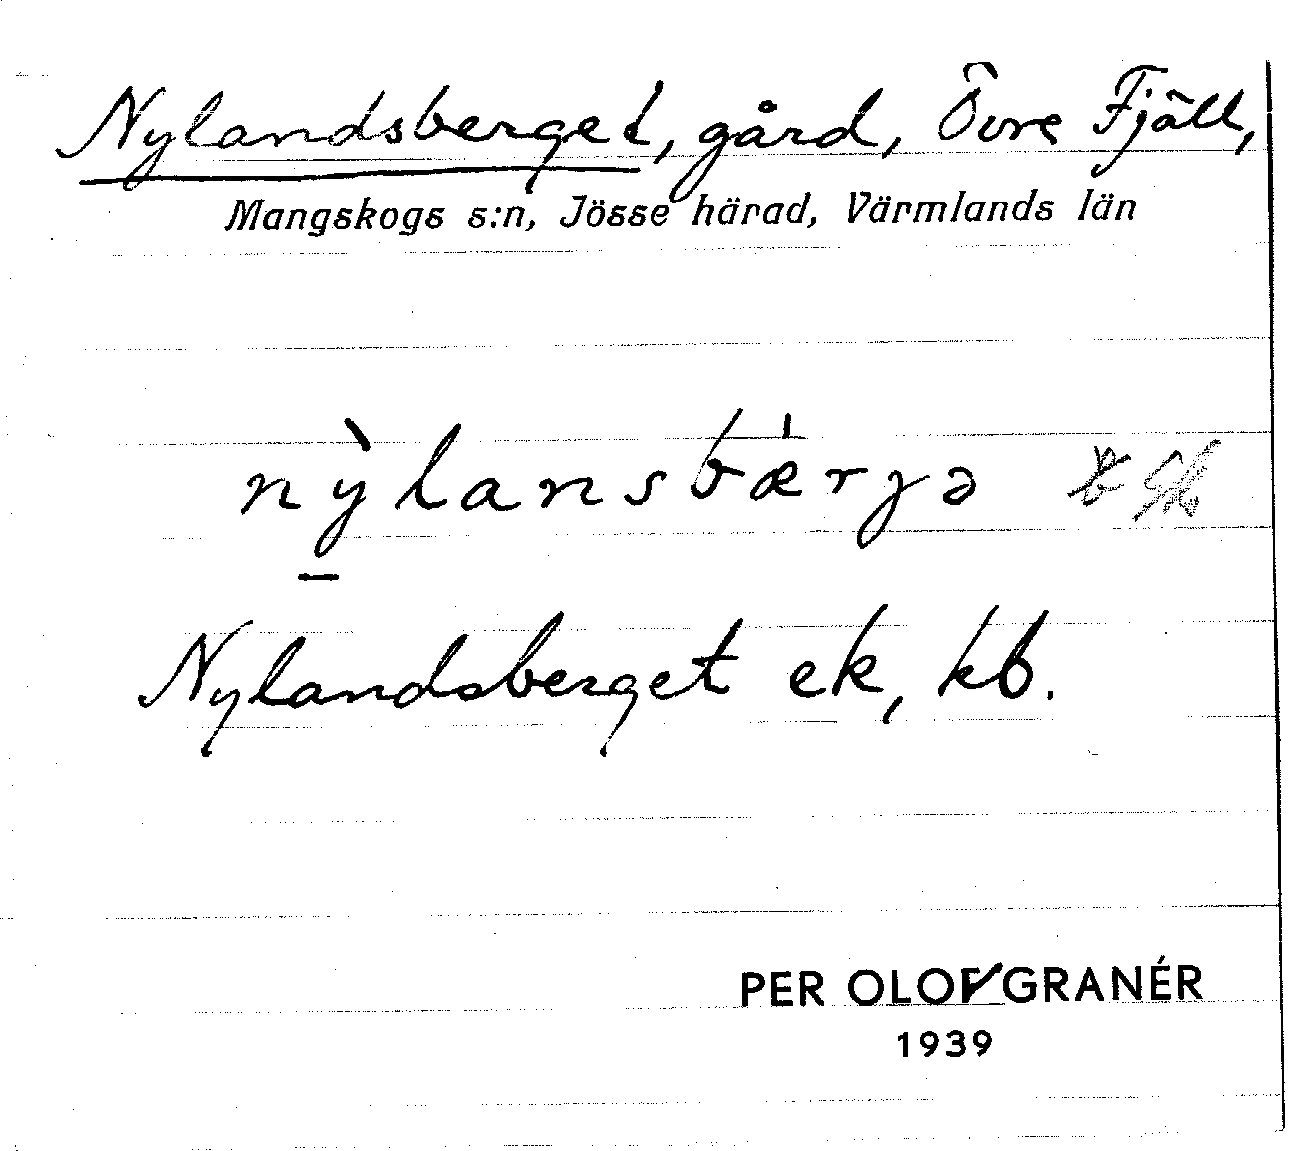 Nylandsberget, gård, Övre Fjäll,
Mangskogs s:n, Jösse härad, Värmlands län
nỳlansbæ̍rɣə
Nylandsberget ek, kb.
PER OLOF GRANÉR
1939